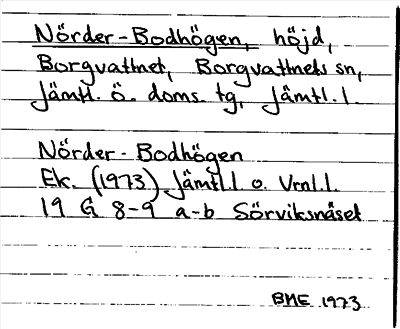 Nörder-Bodhögen, höjd,
Borgvattnet, Borgvattnets sn,
Jämtl. ö. doms. tg, Jämtl. l.
Nörder-Bodhögen
Ek. (1973) Jämtl.l o. Vrnl.l.
19 G 8-9 a-b Sörviksnäset
BNE 1973